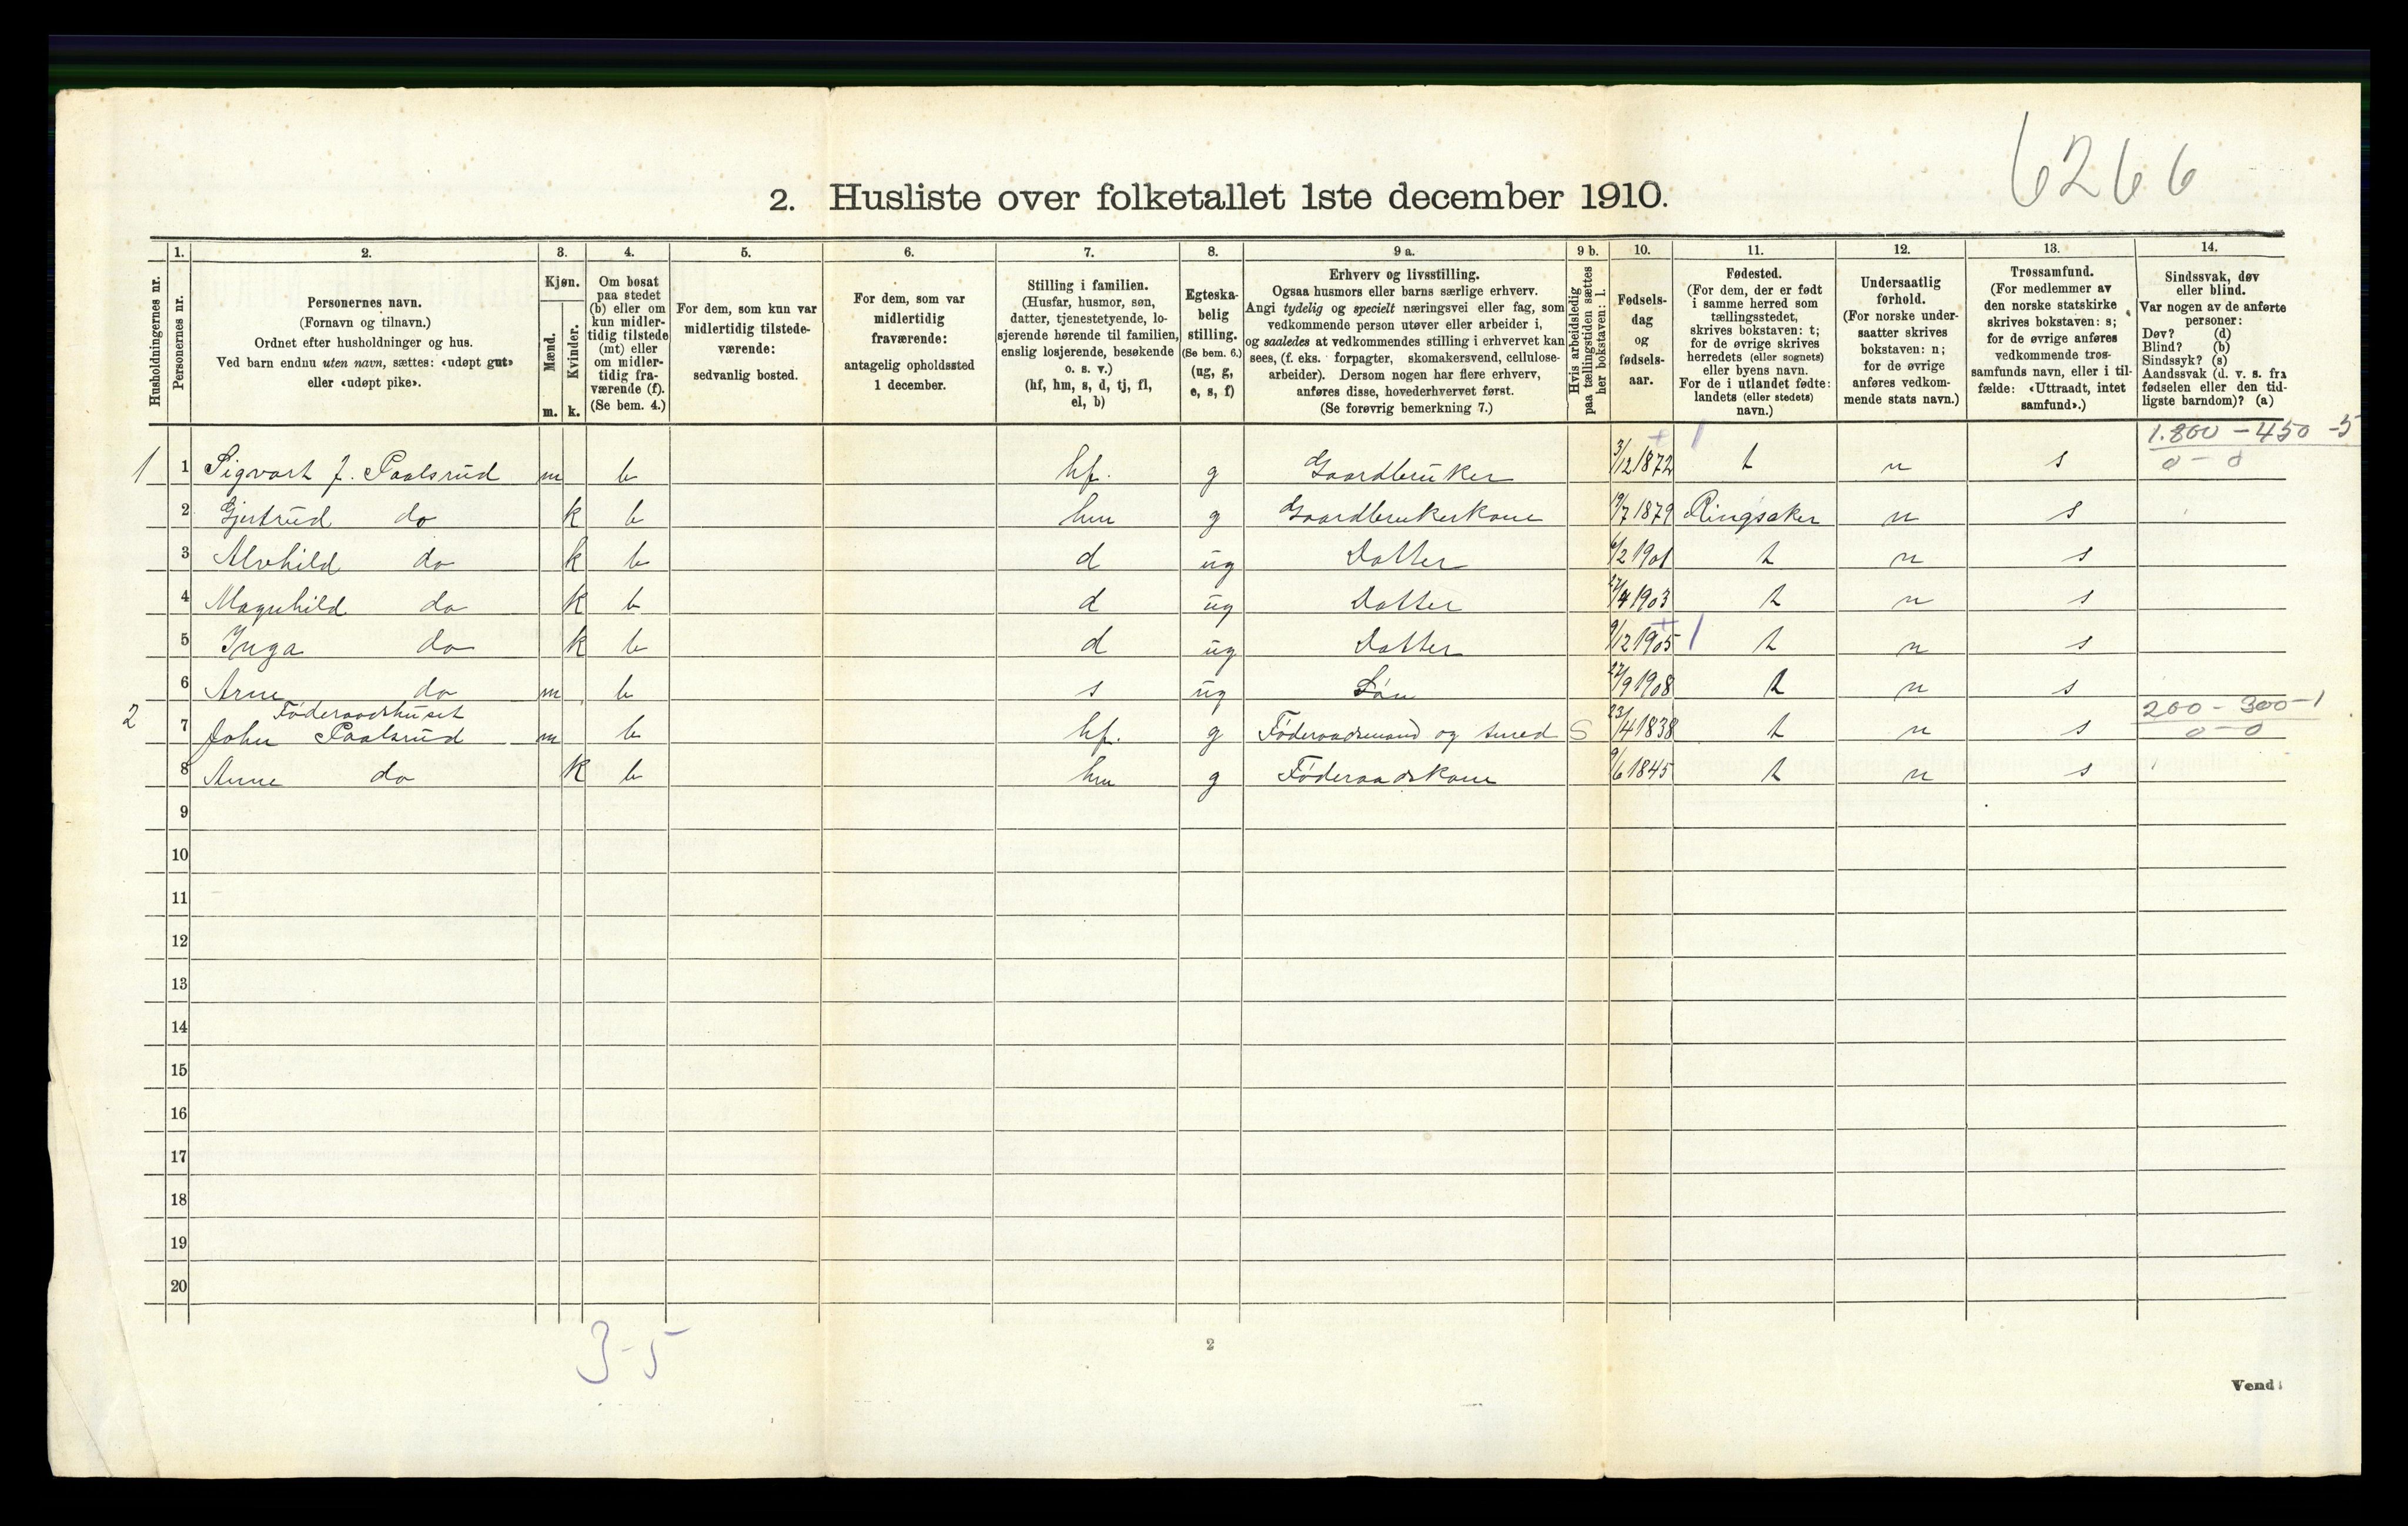 6266
2. Husliste over folketallet 1ste december 1910.
Husholdningernes nr.
1.
Personernes nr.
2.
Personernes navn.
(Fornavn og tilnavn.)
Ordnet efter husholdninger og hus.
Ved barn endnu uten navn, sættes: «udøpt gut»
eller «udøpt pike».
3.
Kjøn.
Mænd.
Kvinder.
m. k.
4.
Om bosat
paa stedet
(b) eller om
kun midler-
tidig tilstede
(mt) eller
om midler-
tidig fra-
værende (f).
(Se bem. 4.)
5.
For dem, som kun var
midlertidig tilstede-
værende:
sedvanlig bosted.
6.
For dem, som var
midlertidig
fraværende:
antagelig opholdssted
1 december.
7.
Stilling i familien.
(Husfar, husmor, søn,
datter, tjenestetyende, lo-
sjerende hørende til familien,
enslig losjerende, besøkende
o. s. v.)
(hf, hm, s, d, tj, fl,
el, b)
8.
Egteska-
belig
stilling.
(Se bem. 6.)
(ug, g,
e, s, f)
9 a.
Erhverv og livsstilling.
Ogsaa husmors eller barns særlige erhverv.
Angi tydelig og specielt næringsvei eller fag, som
vedkommende person utøver eller arbeider i,
og saaledes at vedkommendes stilling i erhvervet kan
sees, (f. eks. forpagter, skomakersvend, cellulose-
arbeider). Dersom nogen har flere erhverv,
anføres disse, hovederhvervet først.
(Se forøvrig bemerkning 7.)
9 b.
Hvis arbeidsledig
paa tællingstiden sættes
her bokstaven: l.
10.
Fødsels-
dag
og
fødsels-
aar.
11.
Fødested.
(For dem, der er født
i samme herred som
tællingsstedet,
skrives bokstaven: t;
for de øvrige skrives
herredets (eller sognets)
eller byens navn.
For de i utlandet fødte:
landets (eller stedets)
navn.)
12.
Undersaatlig
forhold.
(For norske under-
saatter skrives
bokstaven: n;
for de øvrige
anføres vedkom-
mende stats navn.)
13.
Trossamfund.
(For medlemmer av
den norske statskirke
skrives bokstaven: s;
for de øvrige anføres
vedkommende tros-
samfunds navn, eller i til-
fælde: «Uttraadt, intet
samfund».)
14.
Sindssvak, døv
eller blind.
Var nogen av de anførte
personer:
Døv? (d)
Blind? (b)
Sindssyk? (s)
Aandssvak (d. v. s. fra
fødselen eller den tid-
ligste barndom)? (a)
1.800 - 450 - 5
0 - 0
1 1 Sigvart J. Paalsrud m b hf. g Gaardbruker 3/12 1872 t n s
2 Gjertrud do k b hm g Gaardbrukerkone 19/7 1879 Ringsaker n s
3 Alvhild do k b d ug Datter 6/2 1901 t n s
4 Magnhild do k b d ug Datter 27/4 1903 t n s
5 Inga do k b d ug Datter 9/12 1905 t n s
6 Arne do m b s ug Søn 27/9 1908 t n s
Føderaadshuset
200 - 300 - 1
0 - 0
2 7 John Paalsrud m b hf. g Føderaadsmand og smed S 23/4 1838 t n s
8 Anne do k b hm g Føderaadskone 9/6 1845 t n s
9
10
11
12
13
14
15
16
17
18
19
20
3-5
2
Vend!